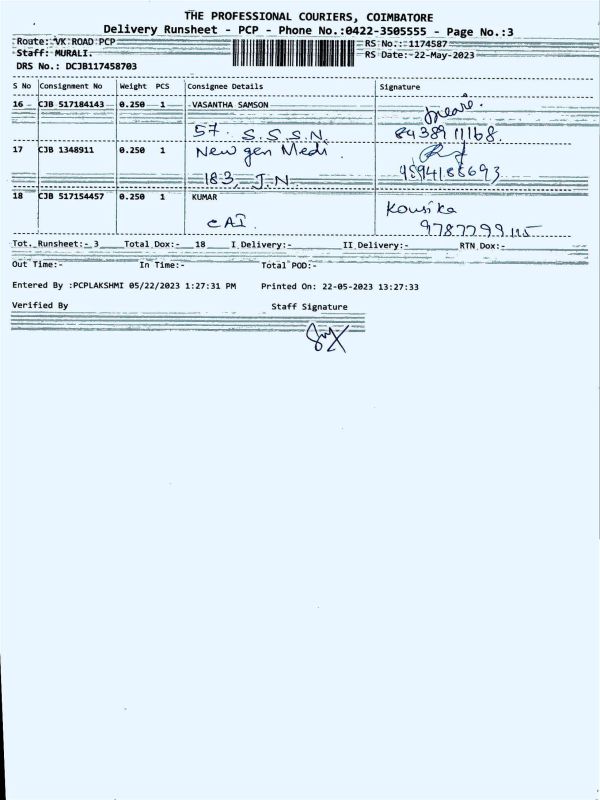 THE PROFESSIONAL COURIERS, COIMBATORE
Delivery Runsheet - PCP - Phone No.:0422-3505555 - Page No.:3
Route: VK ROAD PCP RS No.: 1174587
Staff: MURALI. RS Date:-22-May-2023
DRS No.: DCJB117458703
S No Consignment No Weight PCS Consignee Details Signature
16 CJB 517184143 0.250 1 VASANTHA SAMSON
57. S.S.S.N. 8438911168.
17 CJB 1348911 0.250 1 New gen Medi.
18-3, J.N 9894188693
18 CJB 517154457 0.250 1 KUMAR Kousika
CAI. 9787799115
Tot. Runsheet:- 3 Total Dox:- 18 I Delivery:- II Delivery:- RTN Dox:-
Out Time:- In Time:- Total POD:-
Entered By :PCPLAKSHMI 05/22/2023 1:27:31 PM Printed On: 22-05-2023 13:27:33
Verified By Staff Signature